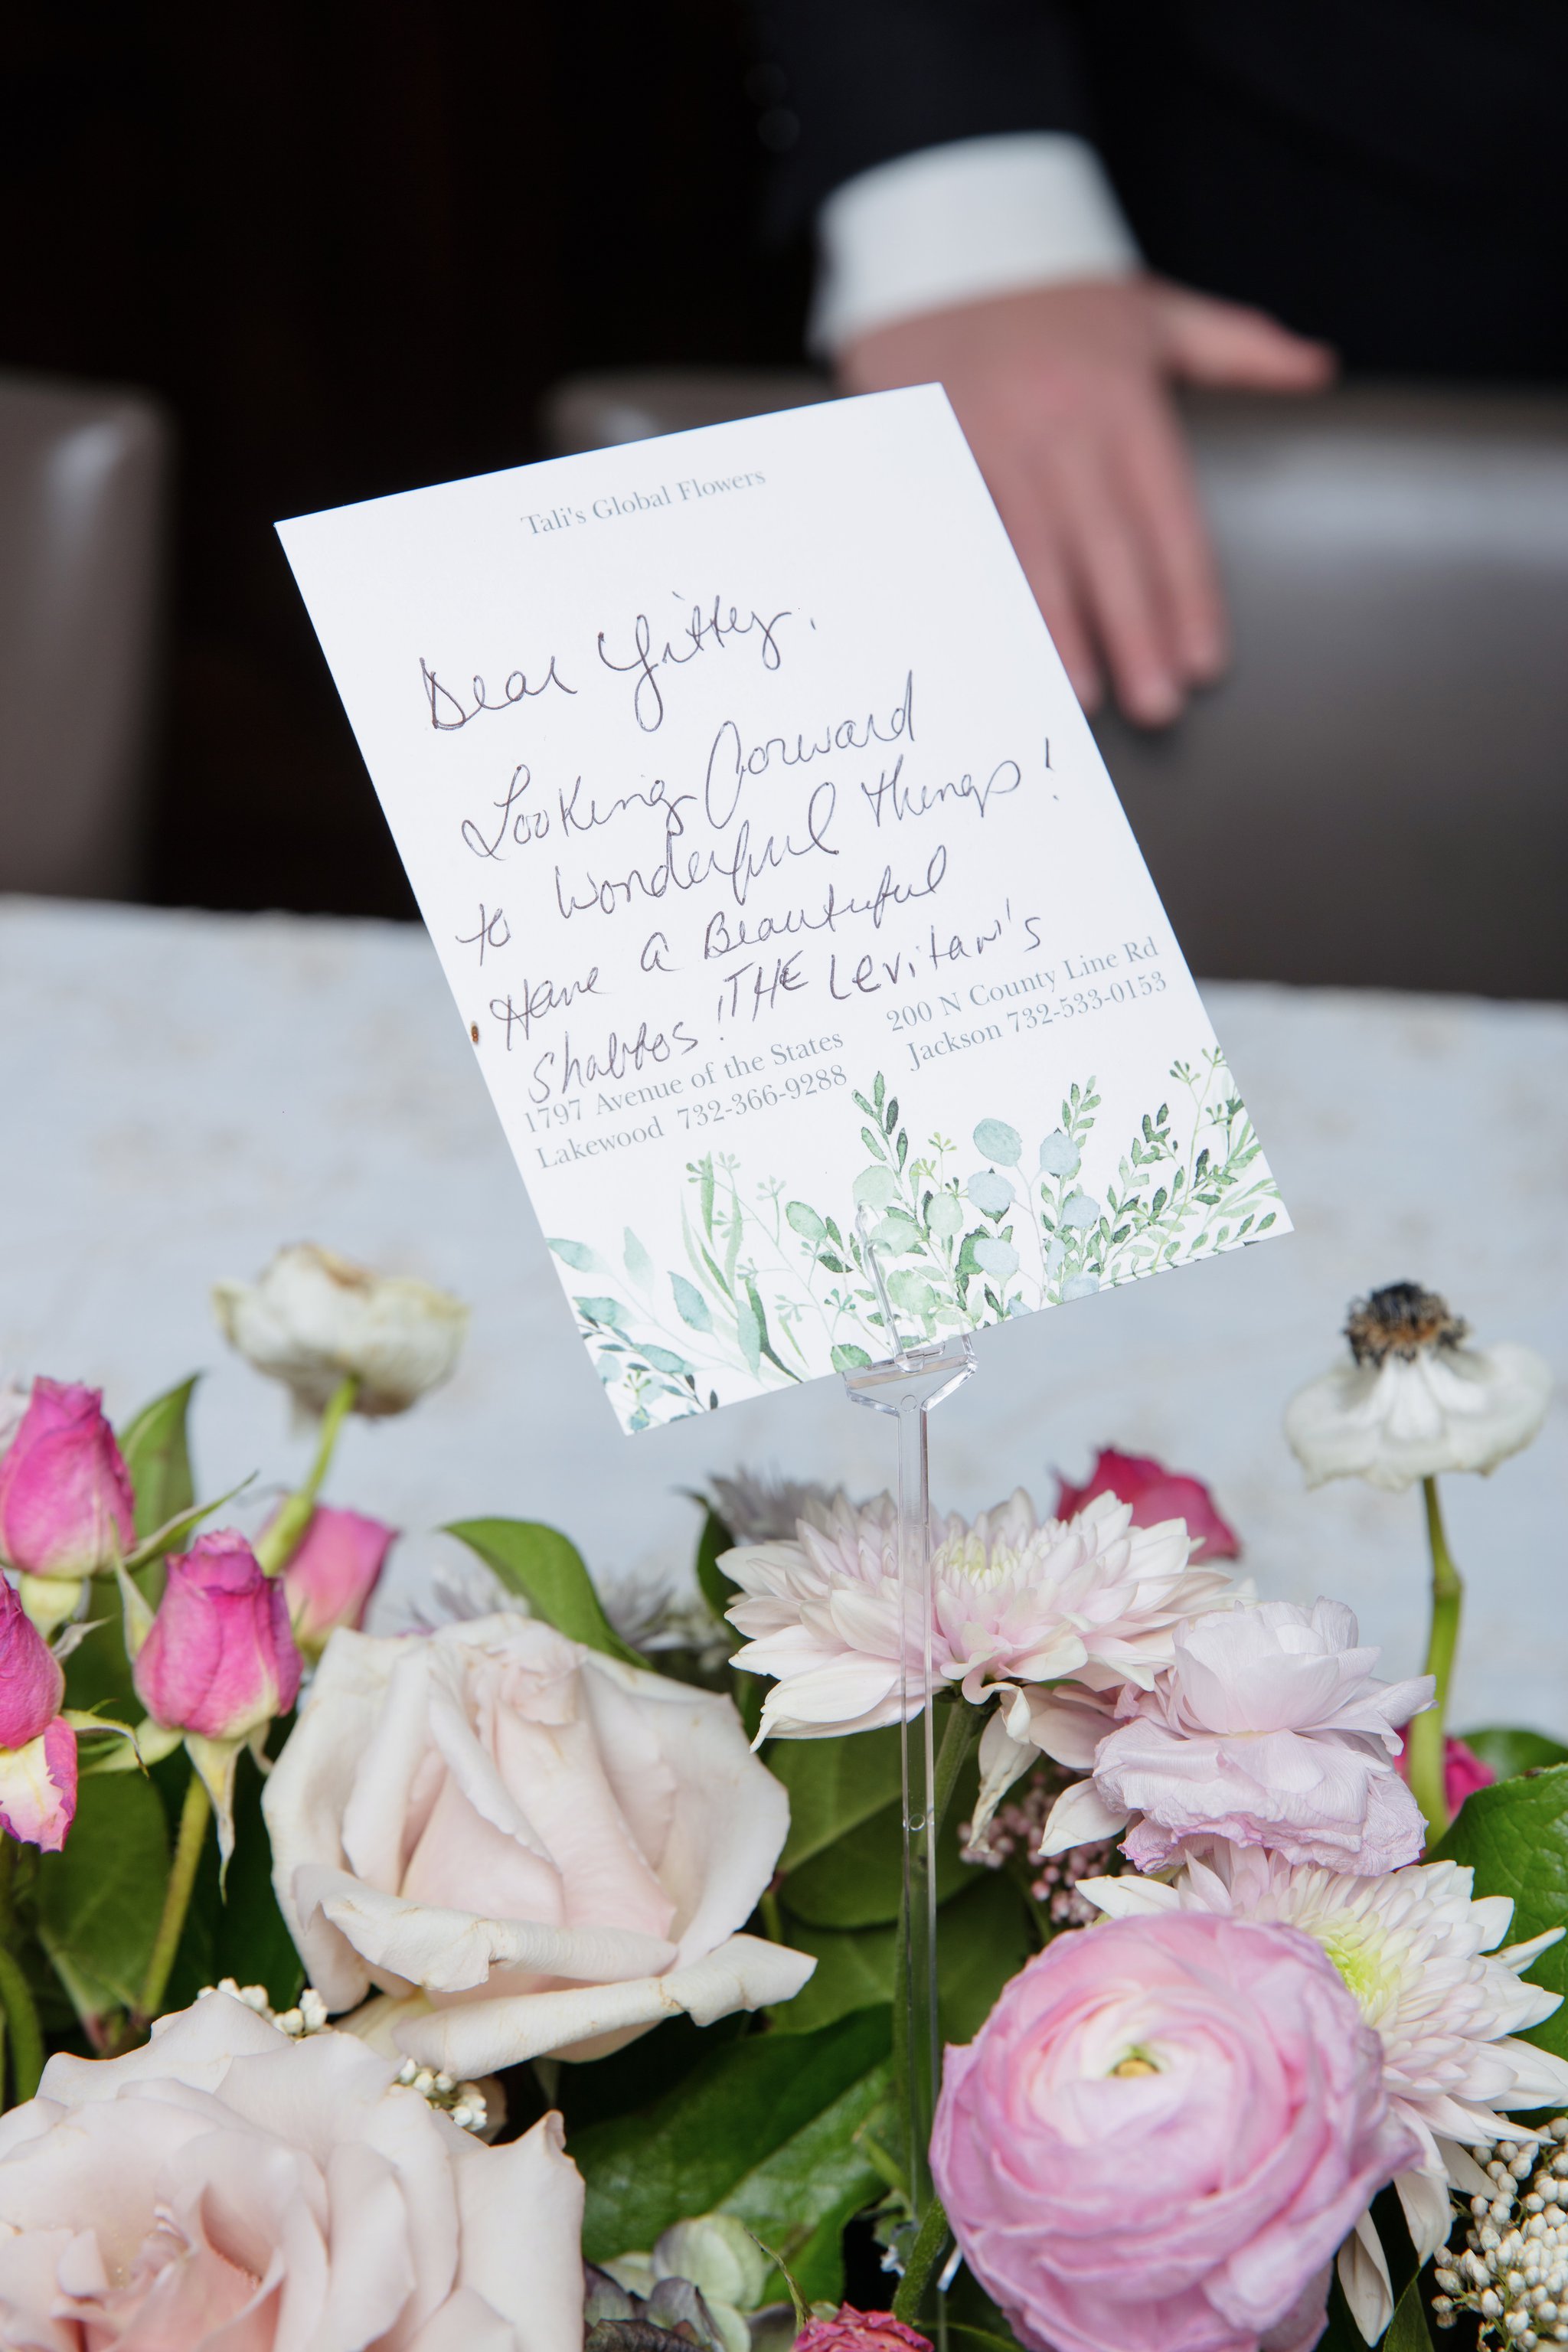 Tali's Global Flowers
Dear Yitty,
Looking forward
to wonderful things!
Have a Beautiful
Shabbos! THE Levitan's
1797 Avenue of the States
Lakewood 732-366-9288
200 N County Line Rd
Jackson 732-533-0153